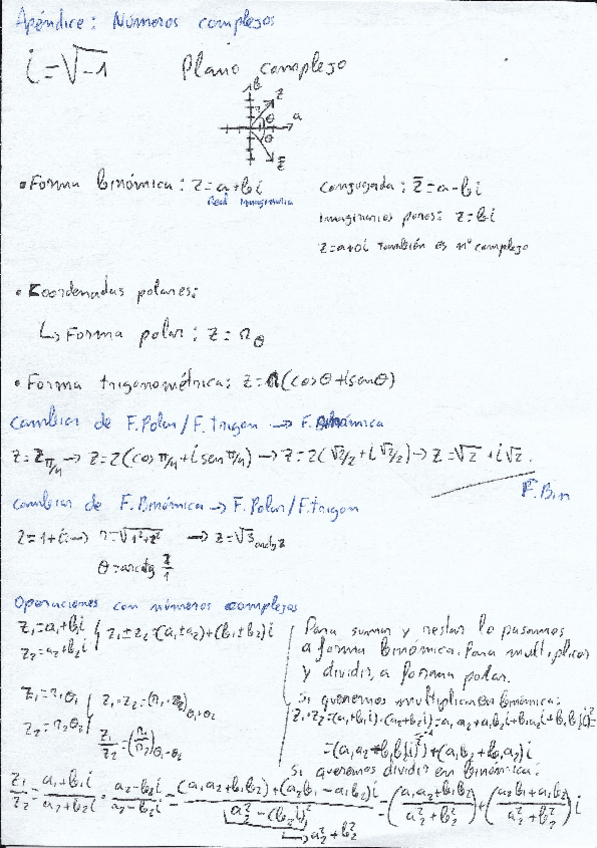 Apéndice: Números complejos
i=√-1 Plano complejo
b
z
a
θ
θ
z̄
• Forma binómica: z=a+bi
Real Imaginaria
Conjugada: z̄=a-bi
Imaginarios puros: z=bi
z=a+0i también es nº complejo
• Coordenadas polares:
↳ Forma polar: z=r_θ
• Forma trigonométrica: z=r(cosθ+isenθ)
Cambiar de F.Polar/F.trigon → F.Binómica
z=2_π/4 → z=2(cos π/4 + i sen π/4) → z=2(√2/2 + i √2/2) → z=√2 + i√2.
F.Bin
Cambiar de F.Binómica → F.Polar/F.trigon
→ r=√1²+
→ z=√3
θ=arctg
Operaciones con números complejos
z₁=a₁+b₁i
z₂=a₂+b₂i
z₁±z₂=(a₁±a₂)+(b₁±b₂)i
Para sumar y restar lo pasamos
a forma binómica. Para multiplicar
y dividir, a forma polar.
z₁=r₁θ₁
z₂=r₂θ₂
z₁·z₂=(r₁·r₂)θ₁+θ₂
z₁/z₂=(r₁/r₂)θ₁-θ₂
Si queremos multiplicar en binómica:
z₁·z₂=(a₁+b₁i)·(a₂+b₂i)=a₁a₂+a₁b₂i+b₁a₂i+b₁b₂i²=
+(a₁b₂+b₁a₂)i
Si queremos dividir en binómica:
z₁/z₂ = (a₁+b₁i)/(a₂+b₂i) · (a₂-b₂i)/(a₂-b₂i) = ((a₁a₂+b₁b₂)+(a₂b₁-a₁b₂)i)/(a₂²-(b₂i)²) = ((a₁a₂+b₁b₂)/(a₂²+b₂²))+((a₂b₁+a₁b₂)/(a₂²+b₂²))i
↳ a₂²+b₂²